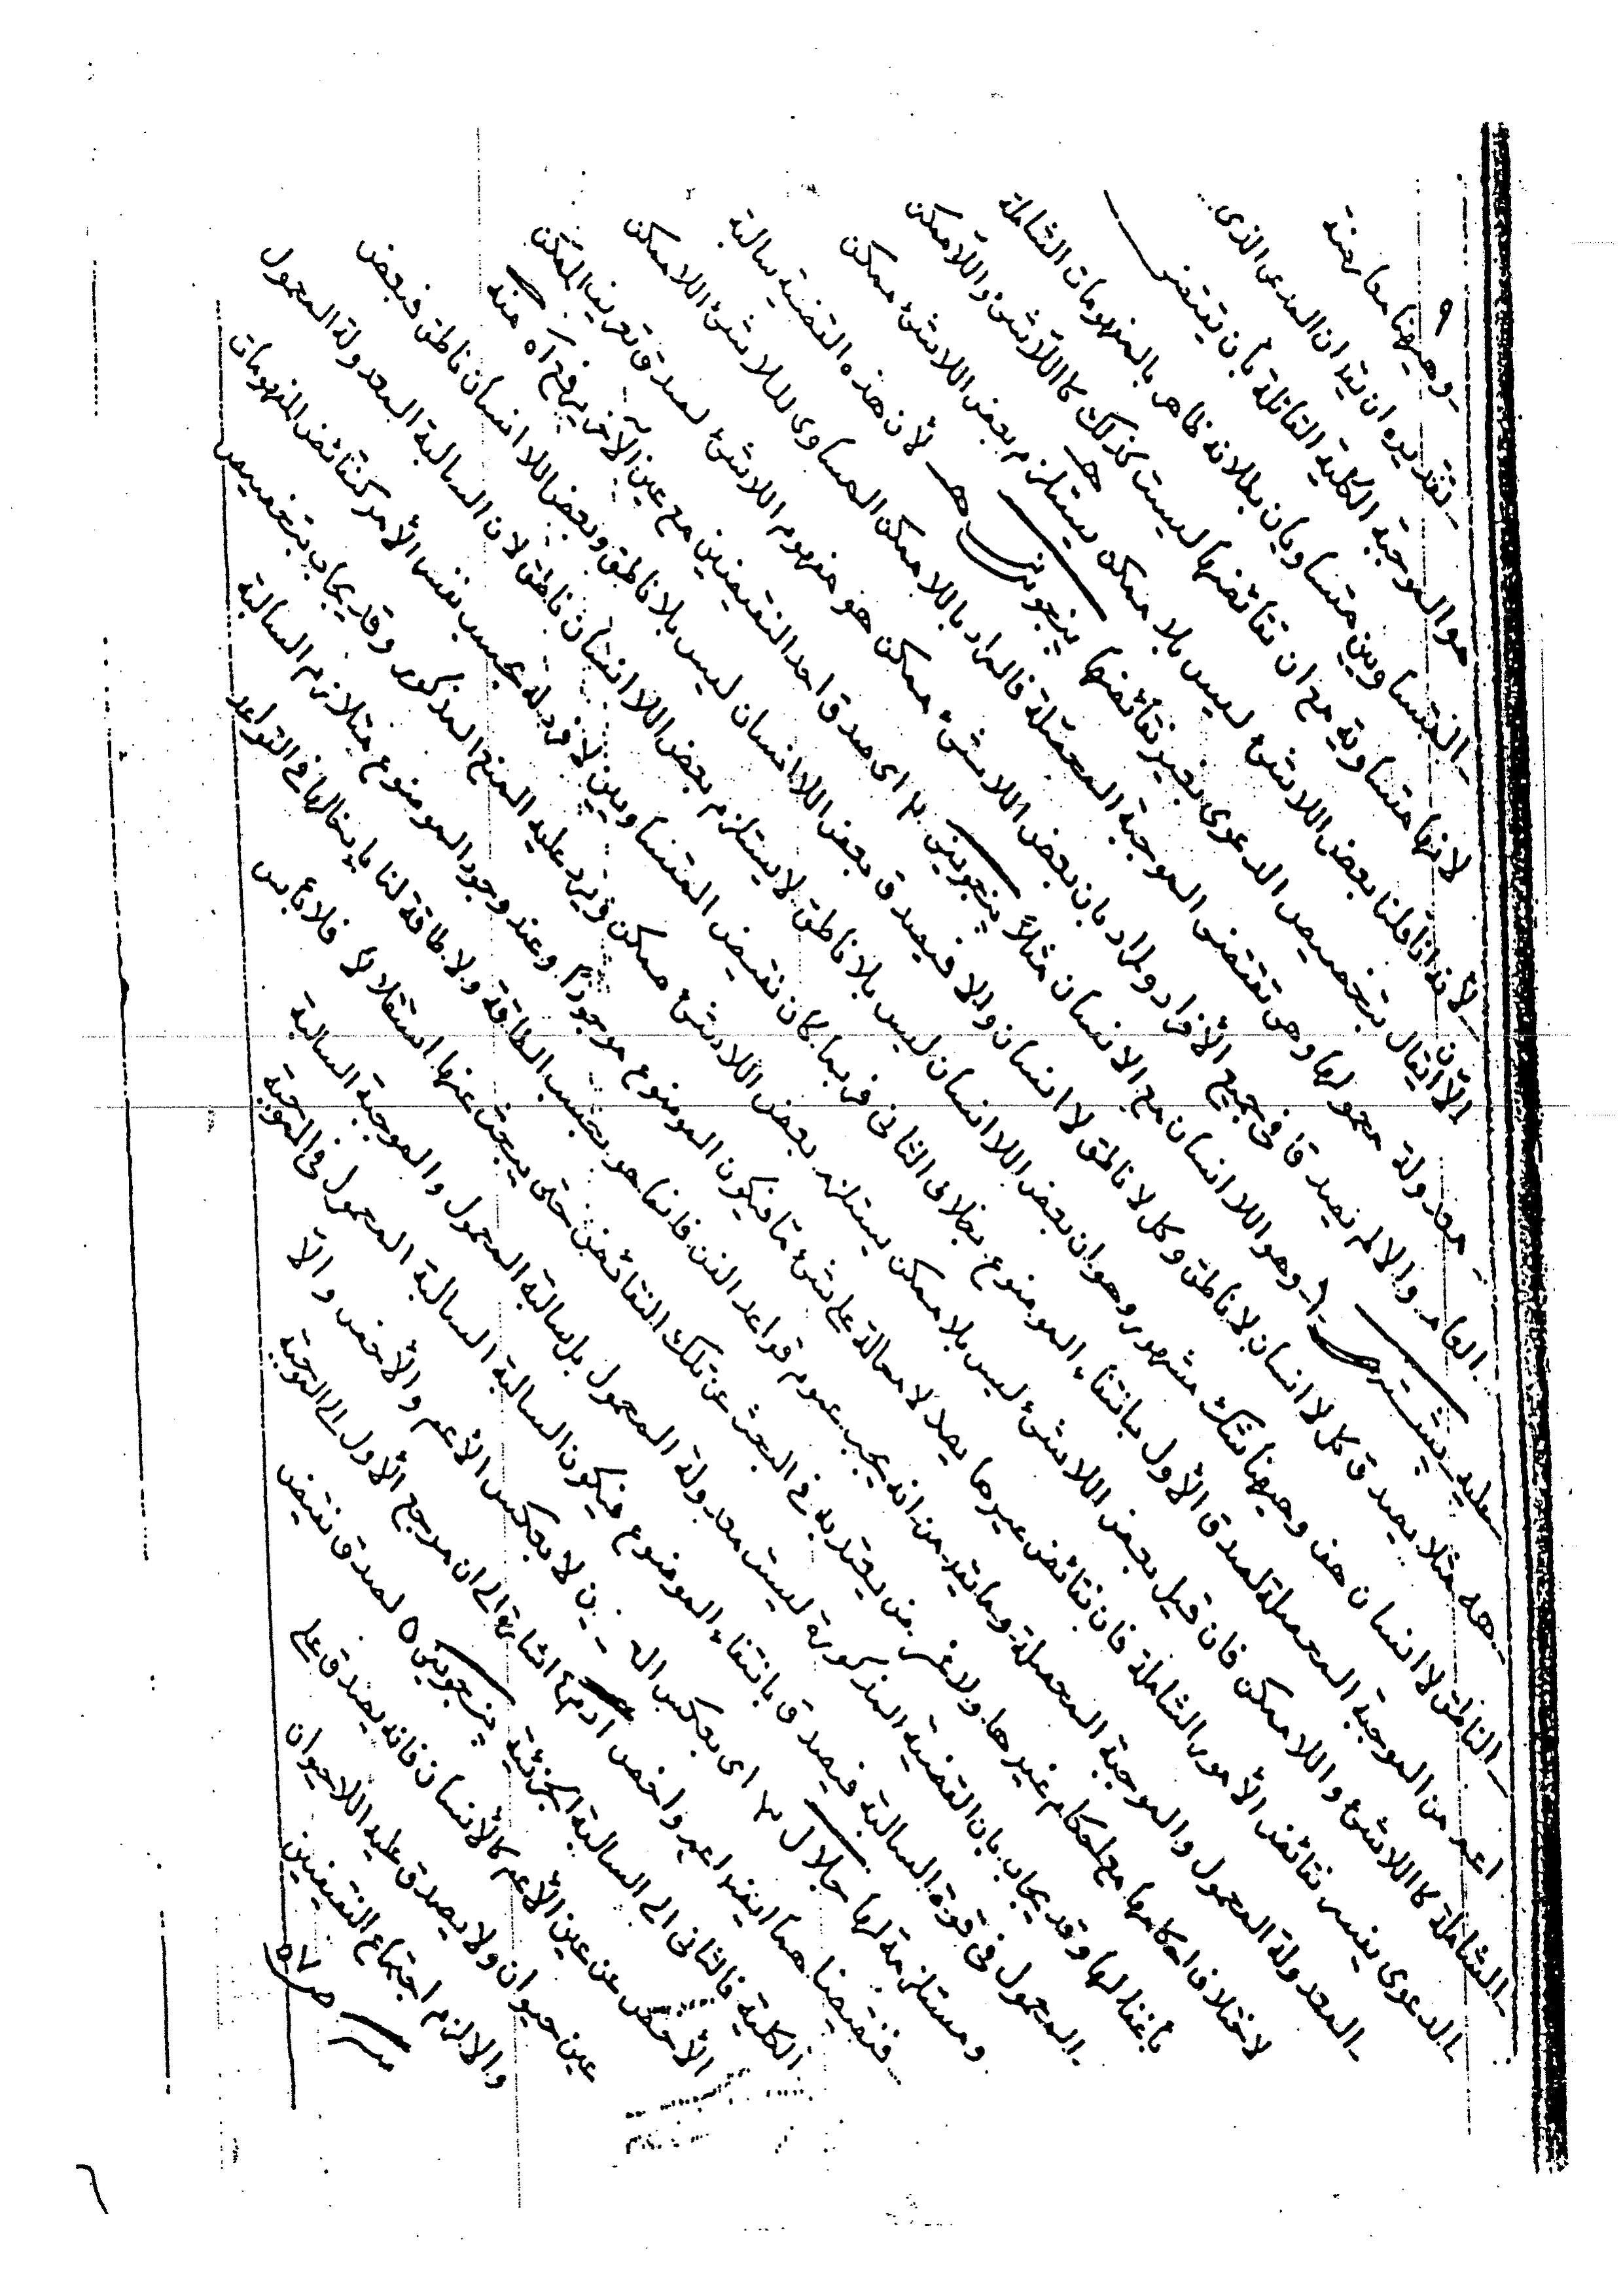 ٩
وهيهنا معارضة
تقديره ان يقال ان المدعى الذى
هو الموجبة الكلية القائلة بأن نقيض
المتساويين متساويان بطلانه ظاهر بالمفهومات الشاملة
لأنها متساوية مع ان نقائضها ليست كذلك كاللاشئ واللاممكن
لأنا اذا قلنا بعض اللاشئ ليس بلا ممكن يستلزم بعض اللاشئ ممكن
الا ان يقال بتخصيص الدعوى بغير نقائضها پنجوينى لأن هذه القضية سالبة
معدولة محمولها وهى تقتضى الموجبة المحصلة فالمراد باللاممكن المساوى لللاشئ اللاممكن
العام والا لم يصدقا فى جميع الأفراد والمراد بان بعض اللاشئ ممكن هو مفهوم اللاشئ لصدق تعريف الممكن
عليه ١ وهو اللاانسان مع الانسان مثلاً پنجوينى ٢ اى صدق احد النقيضين مع عين الآخر يرفع اه منه
مثلا يصدق كل لا انسان لا ناطق وكل لا ناطق لا انسان والا فيصدق بعض اللا انسان ليس بلا ناطق وبعض اللا انسان ناطق فبعض
الناطق لا انسان هف وهيهنا شك مشهور وهو ان بعض اللا انسان ليس بلا ناطق لا يستلزم بعض اللا انسان ناطق لان السالبة المعدولة المحمول
اعم من الموجبة المحصلة لصدق الأول بانتفاء الموضوع بخلاف الثانى فربما كان نقيض المتساويين لا فرد له بحسب نفس الأمر كنقائض المفهومات
الشاملة كاللاشئ واللاممكن فان قيل بعض اللاشئ ليس بلا ممكن يستلزم بعض اللاشئ ممكن ويرد عليه المنع المذكور وقد يجاب بتخصيص
الدعوى بغير نقائض الأمور الشاملة فان نقائض غيرها يصدق لا محالة على شئ ما فيكون الموضوع موجودا وعند وجود الموضوع يتلازم السالبة
المعدولة المحمول والموجبة المحصلة وما يقد من انه يجب عموم قواعد الفن فانما هو بحسب الطاقة ولا طاقة لنا بإدخالها فى القواعد
لاختلاف احكامها مع احكام غيرها ولا غرض يعتد به فى البحث عن تلك النقائض حتى يبحث عنها استقلالا فلا بأس
بأغفالها وقد يجاب بان القضية المذكورة ليست معدولة المحمول بل سالبة المحمول والموجبة السالبة
المحمول فى قوة السالبة فيصدق بانتفاء الموضوع فيكون السالبة السالبة المحمول فى الموجبة
ومستلزمة لها جلال ٣ اى بعكس لا بعكس الأعم والأخص والا
فنقيضا هما ايضا اعم واخص ٤ اشارة الى ان مرجع الأول الى الموجبة
الكلية فالثانى الى السالبة الجزئية پنجوينى ٥ لصدق نقيض
الأخص عن عين الأعم كالأنسان فانه يصدق على
عين حيوان ولا يصدق عليه اللاحيوان
والا لزم اجتماع النقيضين
ص ٥٧
٦